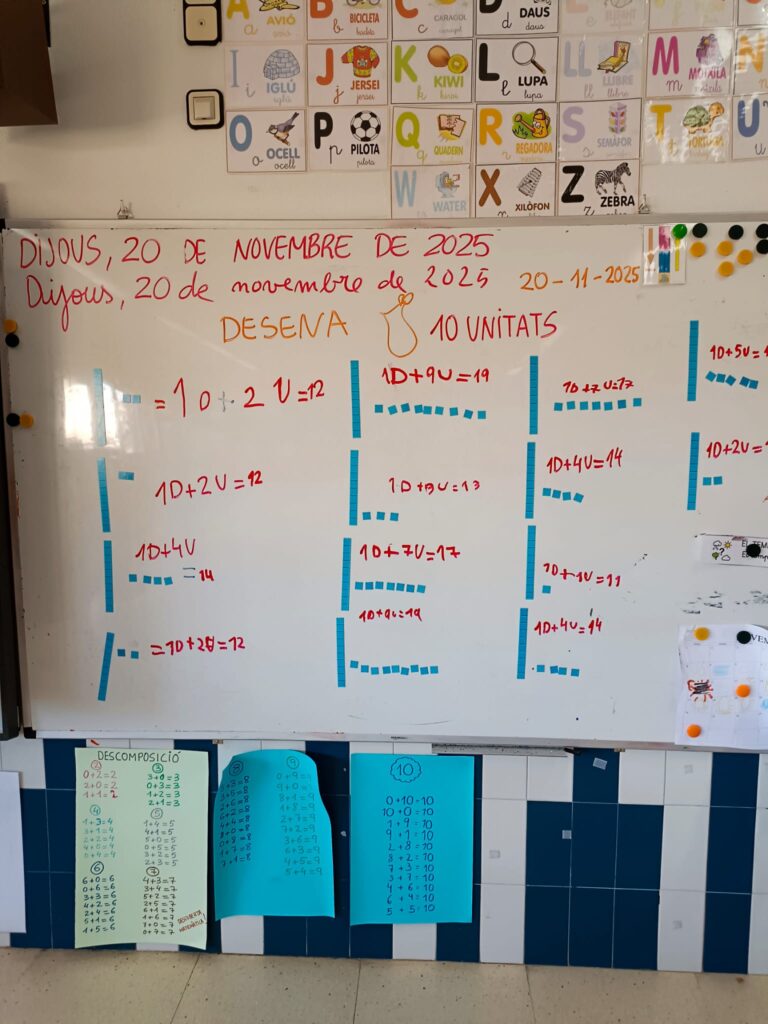 A AVIÓ
a avió
B BICICLETA
b bicicleta
C CARAGOL
c caragol
D DAUS
d daus
I IGLÚ
i iglú
J JERSEI
j jersei
K KIWI
k kiwi
L LUPA
l lupa
LL LLIBRE
ll llibre
M
m
N
O OCELL
o ocell
P PILOTA
p pilota
Q QUADERN
q
R REGADORA
S SEMÀFOR
T TORTUGA
U
W WATER
X XILÒFON
Z ZEBRA
z
DIJOUS, 20 DE NOVEMBRE DE 2025
Dijous, 20 de novembre de 2025
20-11-2025
DESENA 10 UNITATS
= 1D+2U=12
1D+2U=12
1D+4U
=14
=1D+2U=12
1D+9U=19
1D+3U=13
1D+7U=17
1D+9U=19
1D+7U=17
1D+4U=14
1D+1U=11
1D+4U=14
1D+5U=1
1D+2U=1
EL TEM
DESCOMPOSICIÓ
2
0+2=2
2+0=2
1+1=2
3
3+0=3
0+3=3
1+2=3
2+1=3
4
1+3=4
3+1=4
2+2=4
4+0=4
0+4=4
5
1+4=5
4+1=5
5+0=5
0+5=5
3+2=5
2+3=5
6
6+0=6
0+6=6
3+3=6
4+2=6
2+4=6
5+1=6
1+5=6
7
4+3=7
3+4=7
5+2=7
2+5=7
6+1=7
1+6=7
7+0=7
0+7=7
DESCOBERTA
MATEMÀTICA!
8
+3=8
3+5=8
2+6=8
6+2=8
4+4=8
8+0=8
0+8=8
1+7=8
7+1=8
9
0+9=9
9+0=9
8+1=9
1+8=9
2+7=9
7+2=9
3+6=9
6+3=9
4+5=9
5+4=9
10
0+10=10
10+0=10
1+9=10
9+1=10
2+8=10
8+2=10
7+3=10
3+7=10
4+6=10
6+4=10
5+5=10